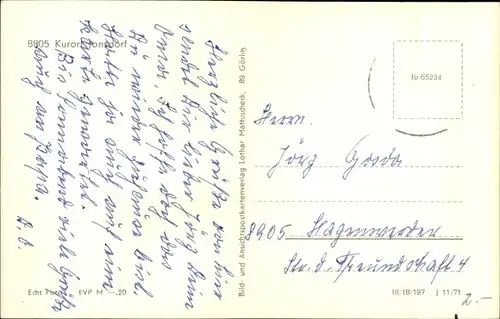 8805 Kurort Jonsdorf
Herzliche Grüße von hier
sendet Dir lieber Jörg Dein
Ich hoffe daß Du
wieder zuhause bist.
ja auch auf eine
Karte gewartet.
viele Grüße
auch an
Echt Foto EVP M —,20
Bild- und Ansichtspostkartenverlag Lothar Mattuscheck, 89 Görlitz
Jo 65234
Herrn
Jörg Gorda
8905 Hagenwerder
Str. d. Freundschaft 4
III/18/197 J 11/71
2.-